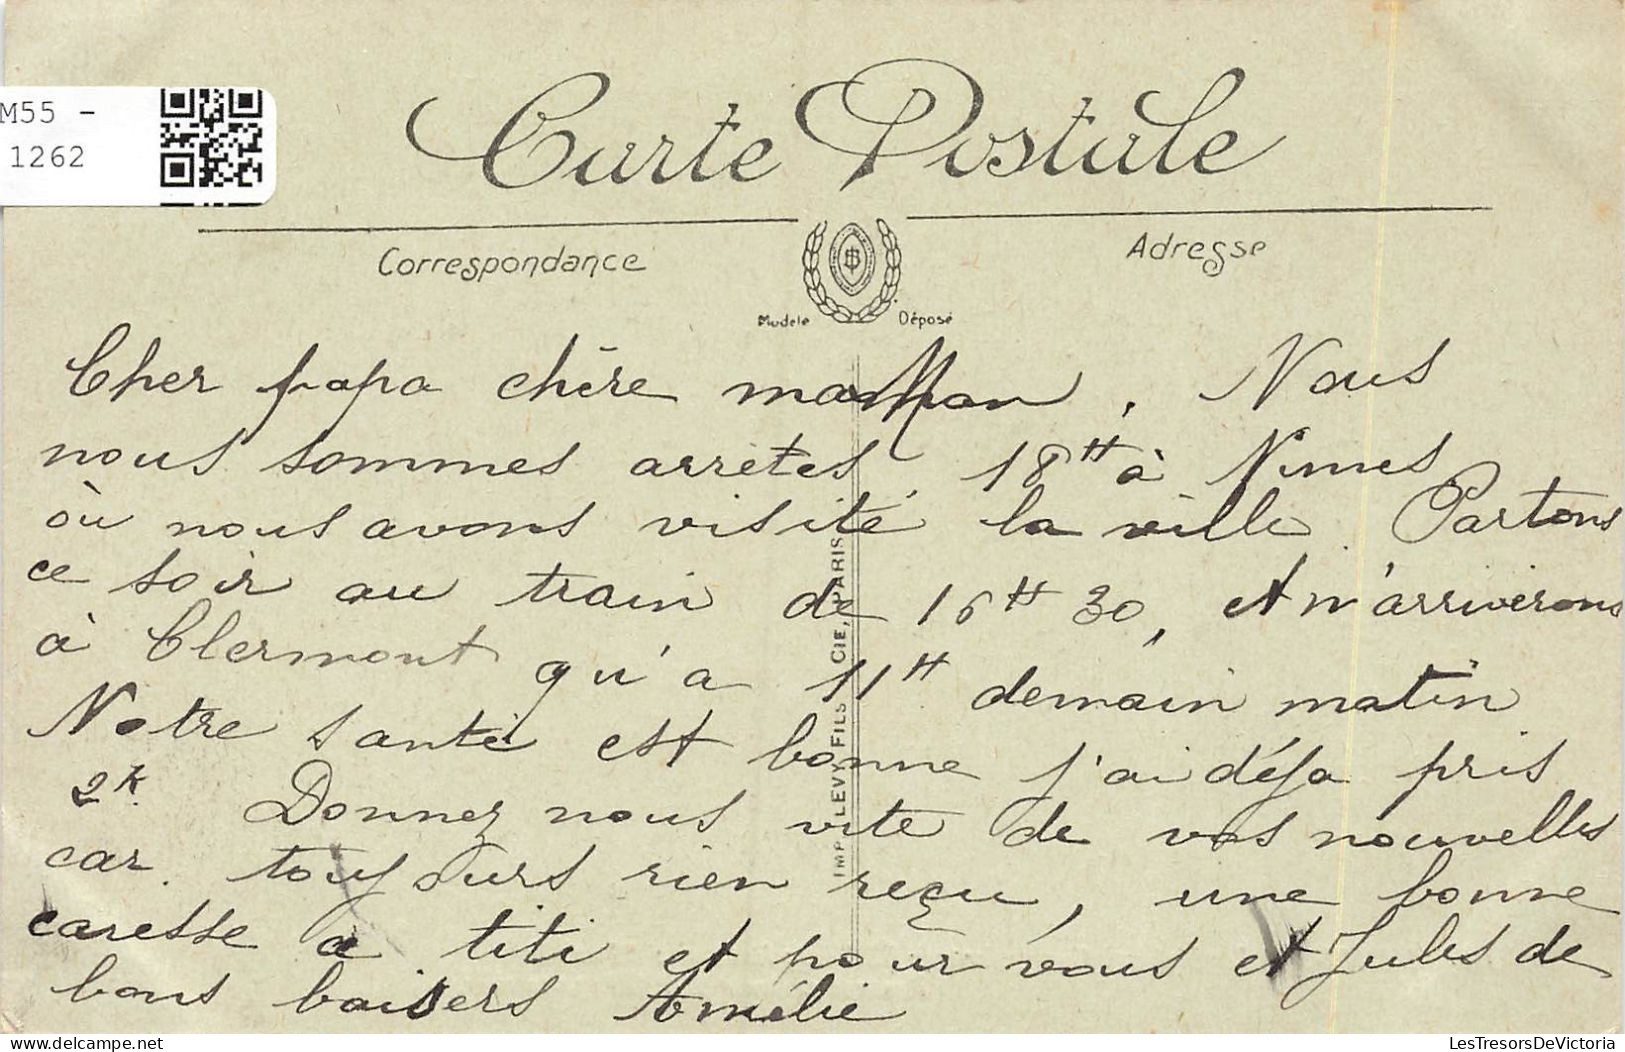 M55 -
1262
Carte Postale
Correspondance
Adresse
Modèle Déposé
Cher papa chère maman. Nous
nous sommes arrètés 18H à Nimes
où nous avons visité la ville. Partons
ce soir au train de 16H30, et n'arriverons
à Clermont qu'a 11H demain matin
Notre santé est bonne j'ai déja pris
2K. Donnez nous vite de vos nouvelles
car toujours rien reçu, une bonne
caresse a titi et pour vous et Jules de
bons baisers Amélie
IMP. LEVY FILS & CIE, PARIS
delcampe.net
LesTresorsDeVictoria